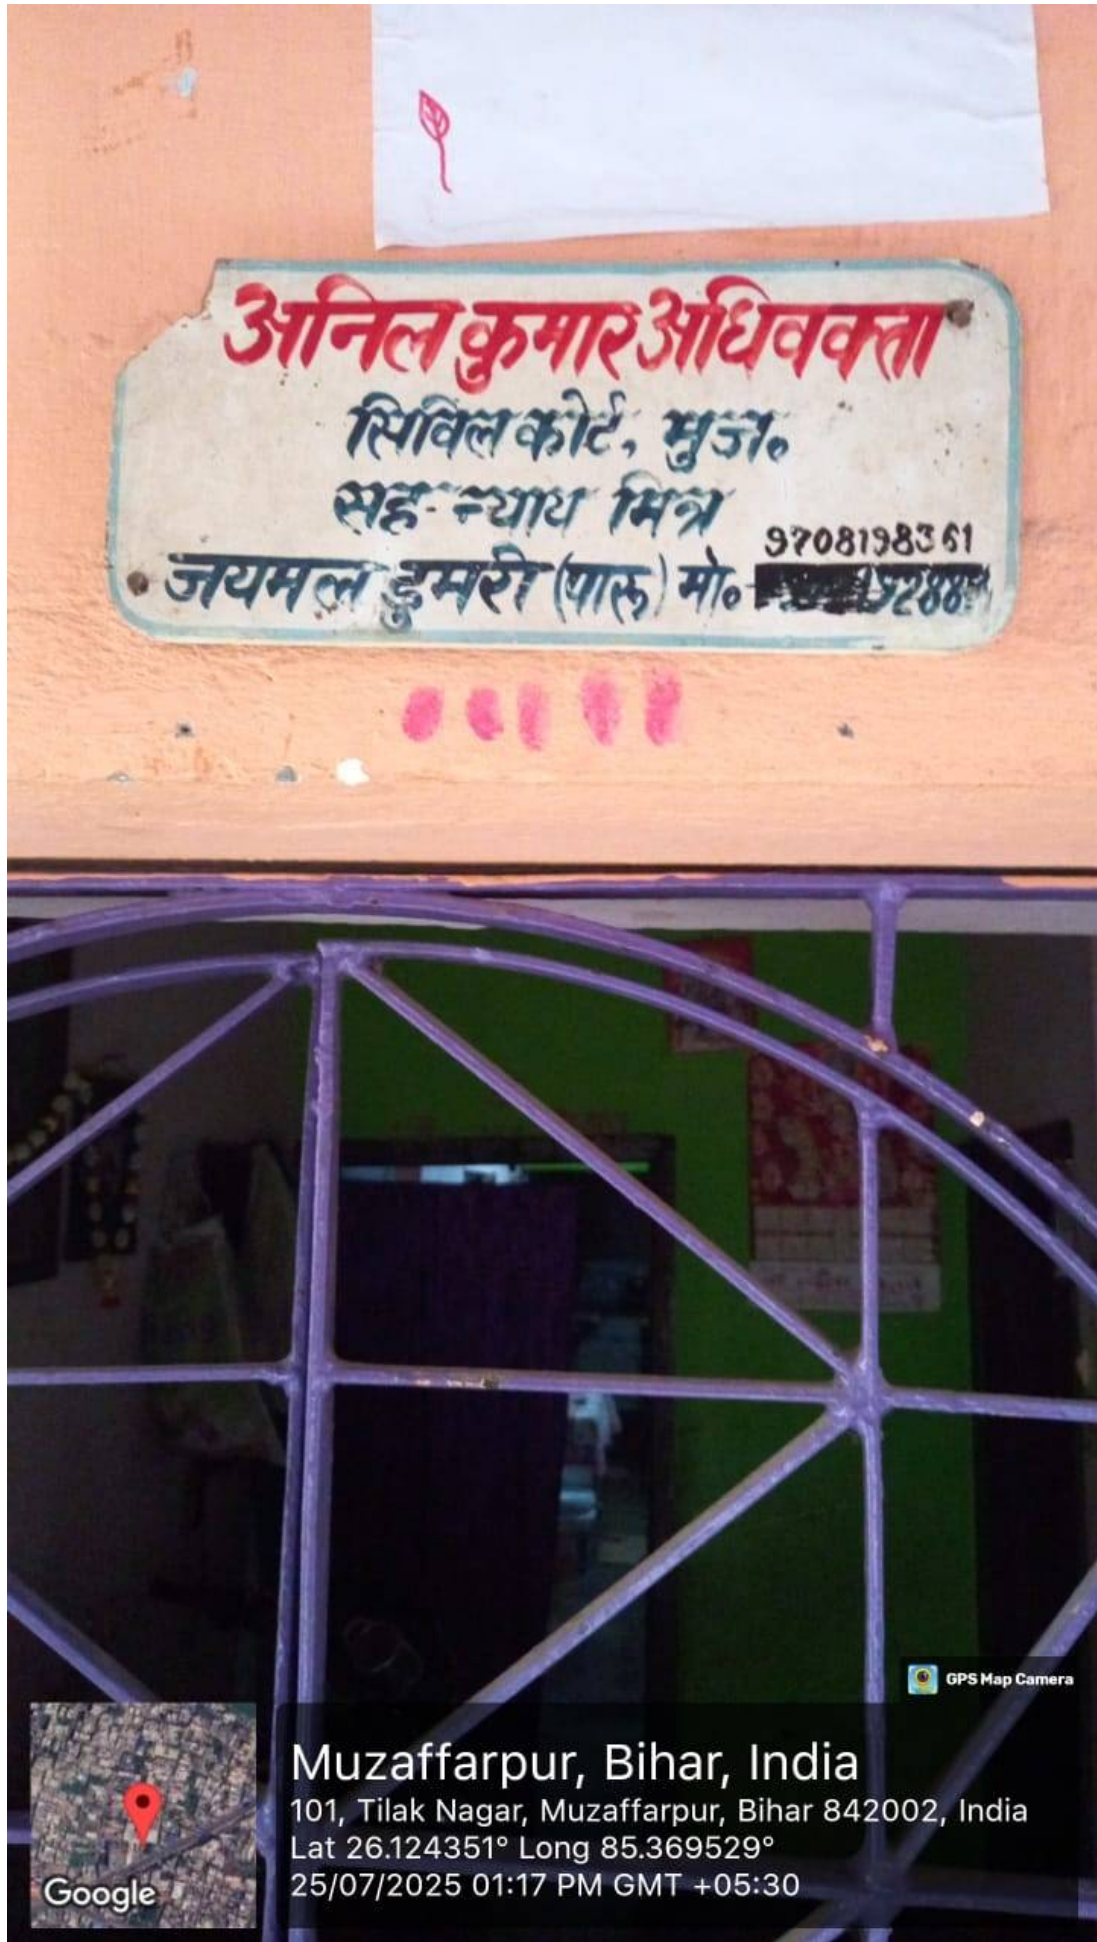 अनिल कुमार अधिवक्ता
सिविल कोर्ट, मुज.
सह-न्याय मित्र
9708198361
जयमल डुमरी (पारू) मो.
GPS Map Camera
Muzaffarpur, Bihar, India
101, Tilak Nagar, Muzaffarpur, Bihar 842002, India
Lat 26.124351° Long 85.369529°
25/07/2025 01:17 PM GMT +05:30
Google